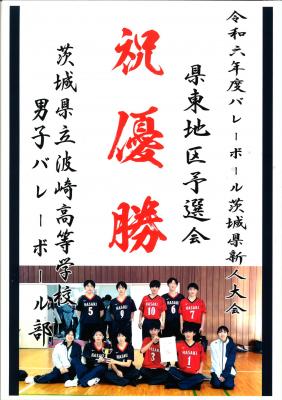 令和六年度バレーボール茨城県新人大会
県東地区予選会
祝優勝
茨城県立波崎高等学校
男子バレーボール部
HASAKI
5
HASAKI
9
HASAKI
10
HASAKI
6
HASAKI
7
HASAKI
HASAKI
3
HASAKI
1